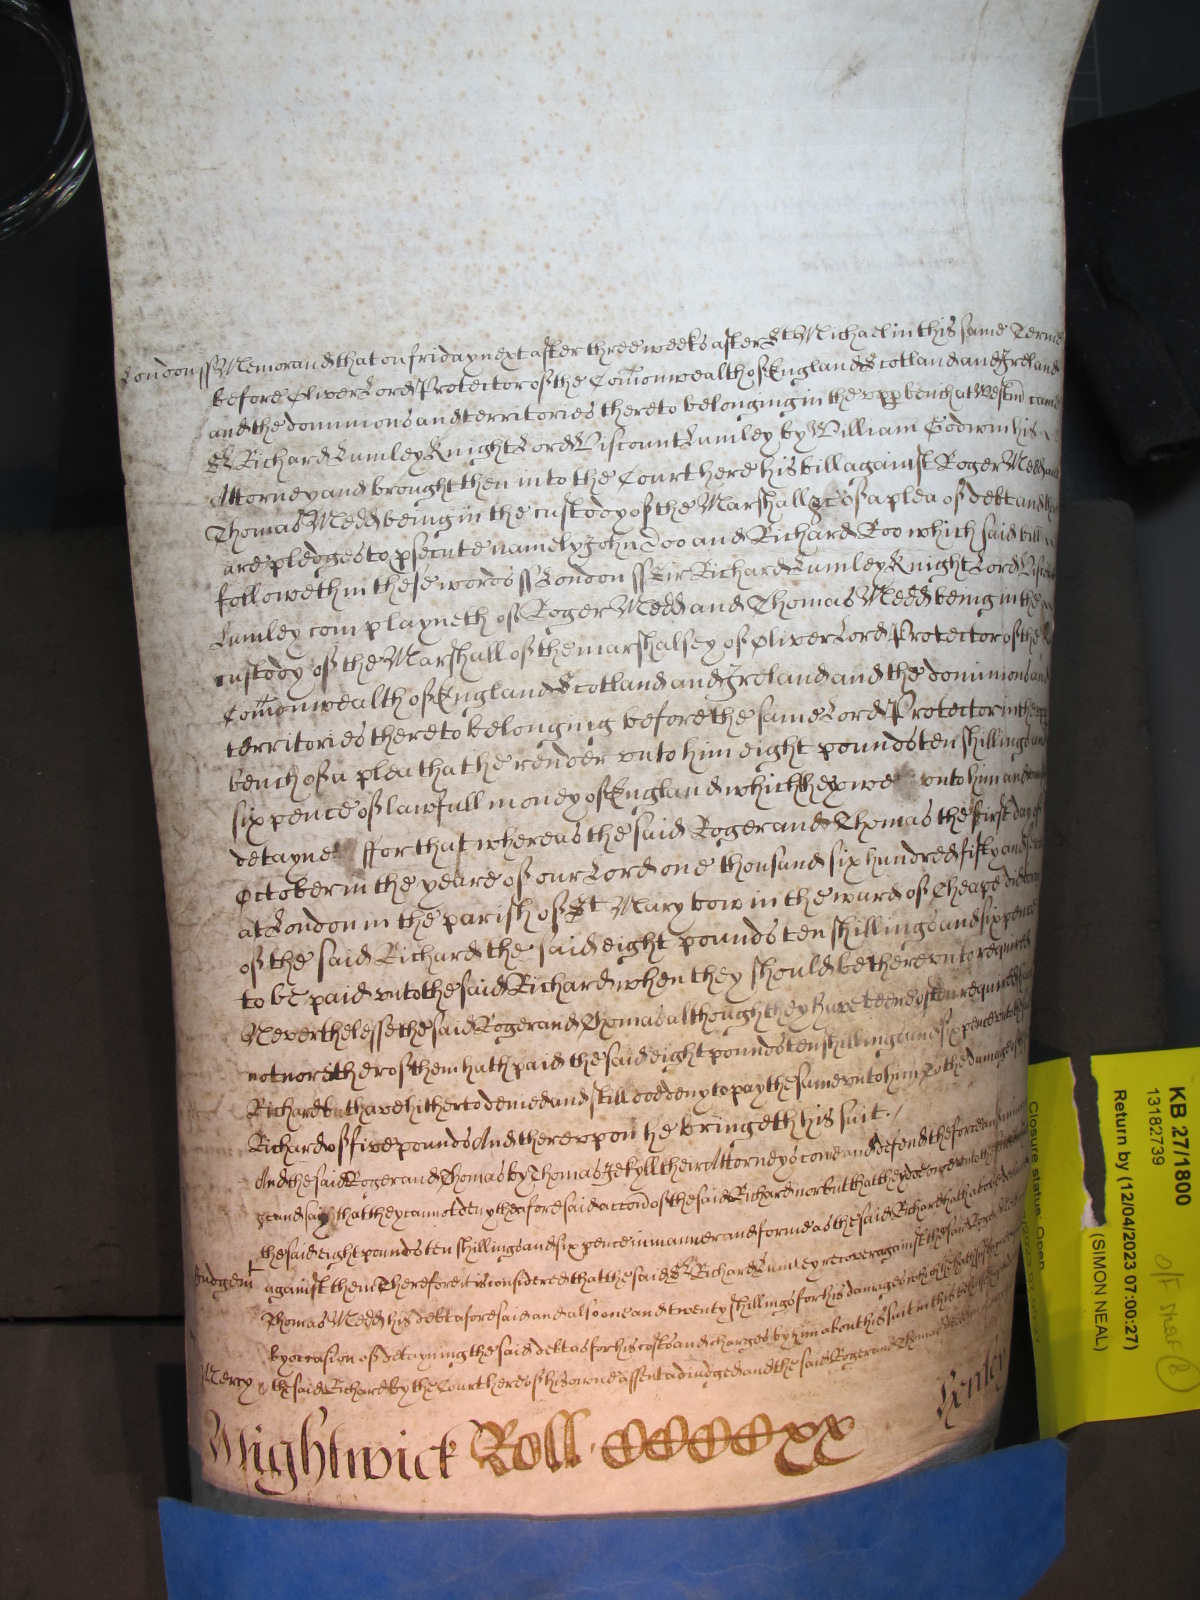 London ss Memorand that on friday next after three weeks after St Michael in this same Terme
before Oliver Lord Protector of the Comonwealth of England Scotland and Ireland
and the dominions and territories thereto belonging in the upp bench at Westm came
Sr Richard Lumley Knight Lord Viscount Lumley by William Godwin his
Attorney and brought then into the Court here his bill against Roger Medd and
Thomas Medd being in the custody of the Marshall &c of a plea of debt and
are pledges to psecute namely John Doo and Richard Roo which said bill
followeth in these words ss London ss Sir Richard Lumley Knight Lord
Lumley complayneth of Roger Medd and Thomas Medd being in the
custody of the Marshall of the marshalsey of Oliver Lord Protector of the
Comonwealth of England Scotland and Ireland and the dominions and
territories thereto belonging before the same Lord Protector in the
bench of a plea that he render unto him eight pounds ten shillings and
six pence of lawfull money of England which they owe unto him and
detayne ffor that whereas the said Roger and Thomas the first day of
October in the yeare of our Lord one thousand six hundred fifty and
at London in the parish of St Mary bow in the ward of Cheape
of the said Richard the said eight pounds ten shillings and six pence
to be paid unto the said Richard when they should be thereunto required
Neverthelesse the said Roger and Thomas although they have beene often required
not nor either of them hath paid the said eight pounds ten shillings and six pence unto the
Richard but have hitherto denied and still doe deny to pay the same unto him To the damage of
Richard of five pounds And thereupon he bringeth his suit
And the said Roger and Thomas by Thomas Jekyll their Attorney come and defend the force and
&c and say that they cannot deny the aforesaid accon of the said Richard nor but that they doe owe unto the
the said eight pounds ten shillings and six pence in manner and forme as the said Richard hath above
Judgemt against them Therefore it is considered that the said Sr Richard Lumley recover against the said Roger
Thomas Medd his debt aforesaid and also one and twenty shillings for his damages which he hath
by occasion of detayning the said debt as for his costs and charges by him about his suit in this
Mercy the said Richard by the Court here of his owne assent adiudged and the said Roger and Thomas
Wightwick Roll CCCCXX Henley
KB 27/1800
13182739
Return by (12/04/2023 07:00:27)
(SIMON NEAL)
Closure status: Open